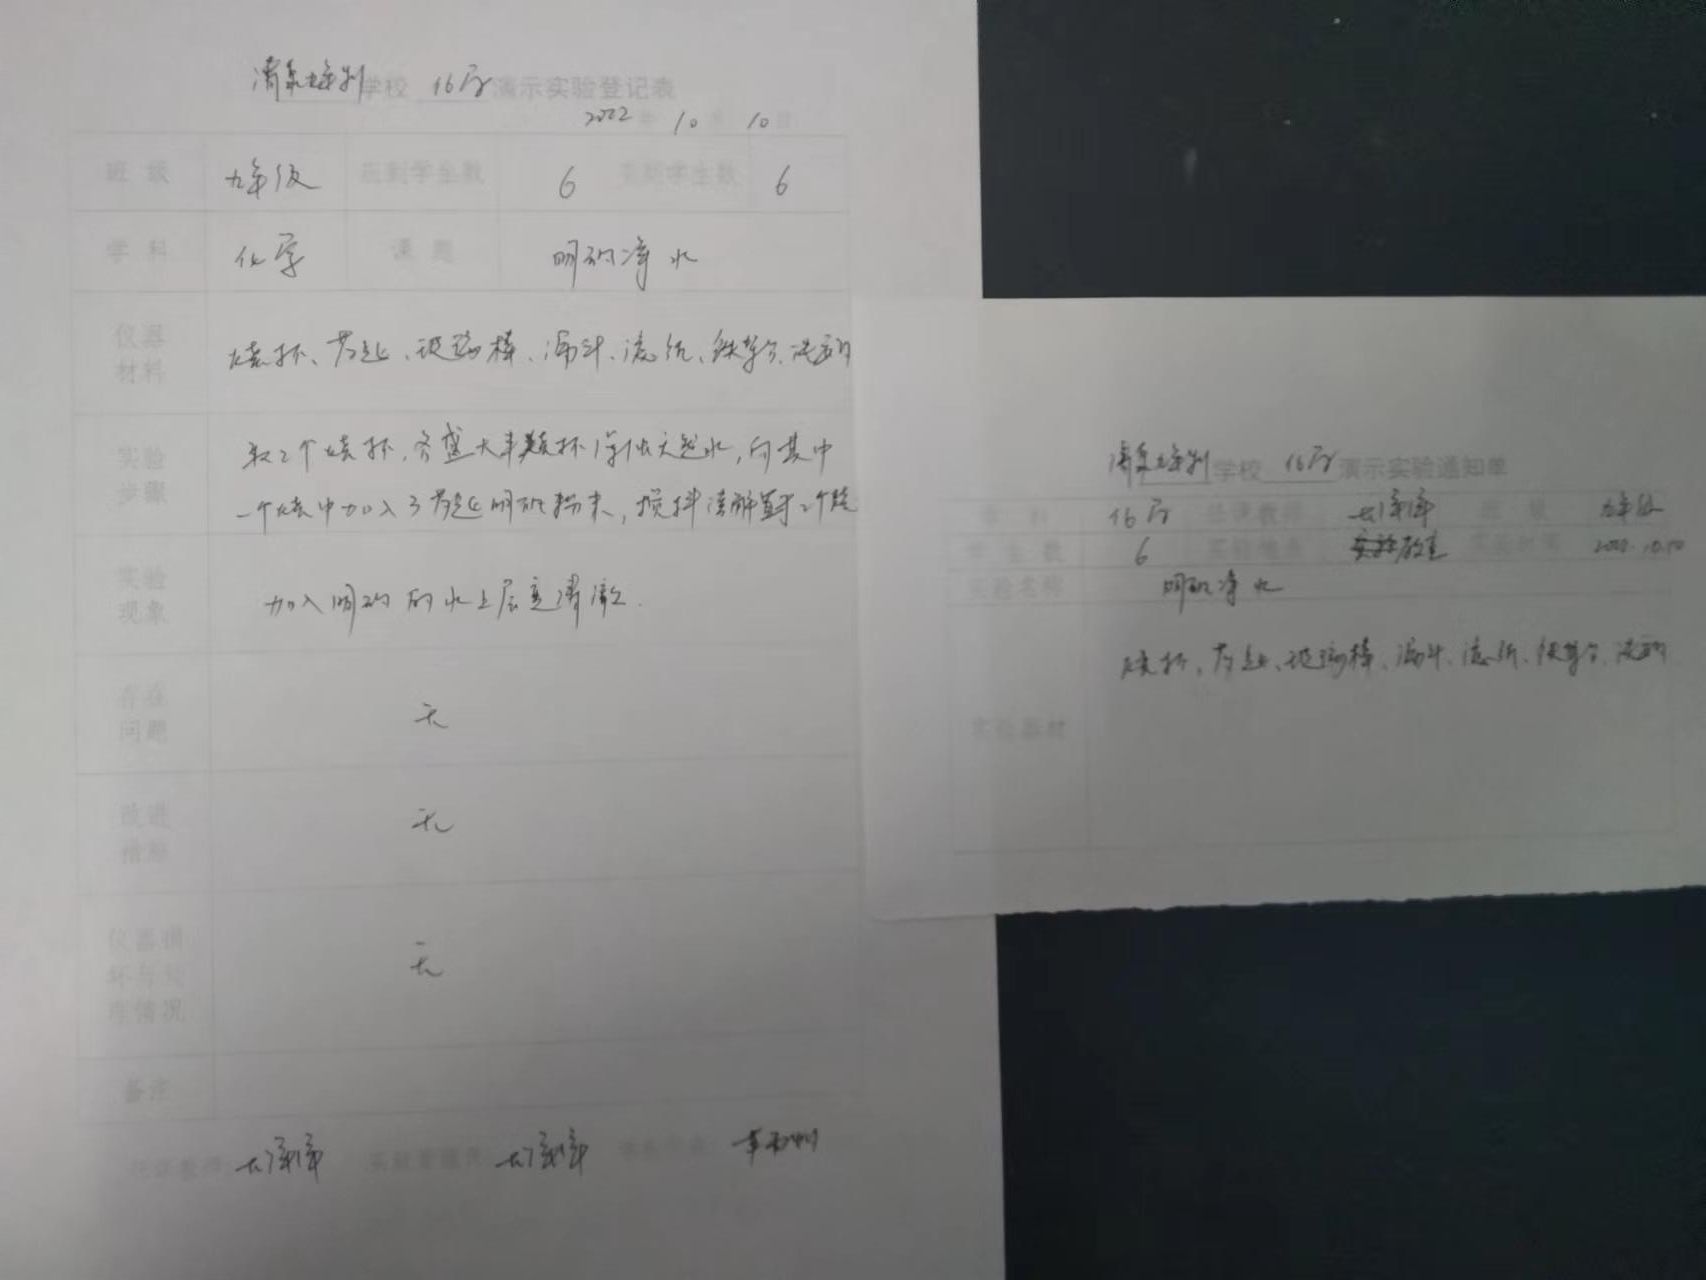 学校 化学 演示实验登记表
2022年 10月 10日
班级 九年级 应到学生数 6 实到学生数 6
学科 化学 课题 明矾净水
仪器材料 烧杯、药匙、玻璃棒、漏斗、滤纸、铁架台、
实验步骤 取2个烧杯,各盛大半烧杯浑浊天然水,向其中
一个烧中加入3药匙明矾粉末,搅拌溶解
实验现象 加入明矾的水上层变清澈.
存在问题 无
改进 无
仪器损坏与 理情况 无
备注
任课教师 实验管理员
学校 化学 演示实验通知单
学科 化学 任课教师 班级 九年级
学生数 6 实验地点 教室 实验时间 2022.10.10
实验名称 明矾净水
实验器材 烧杯,药匙、玻璃棒、漏斗、滤纸、铁架台、